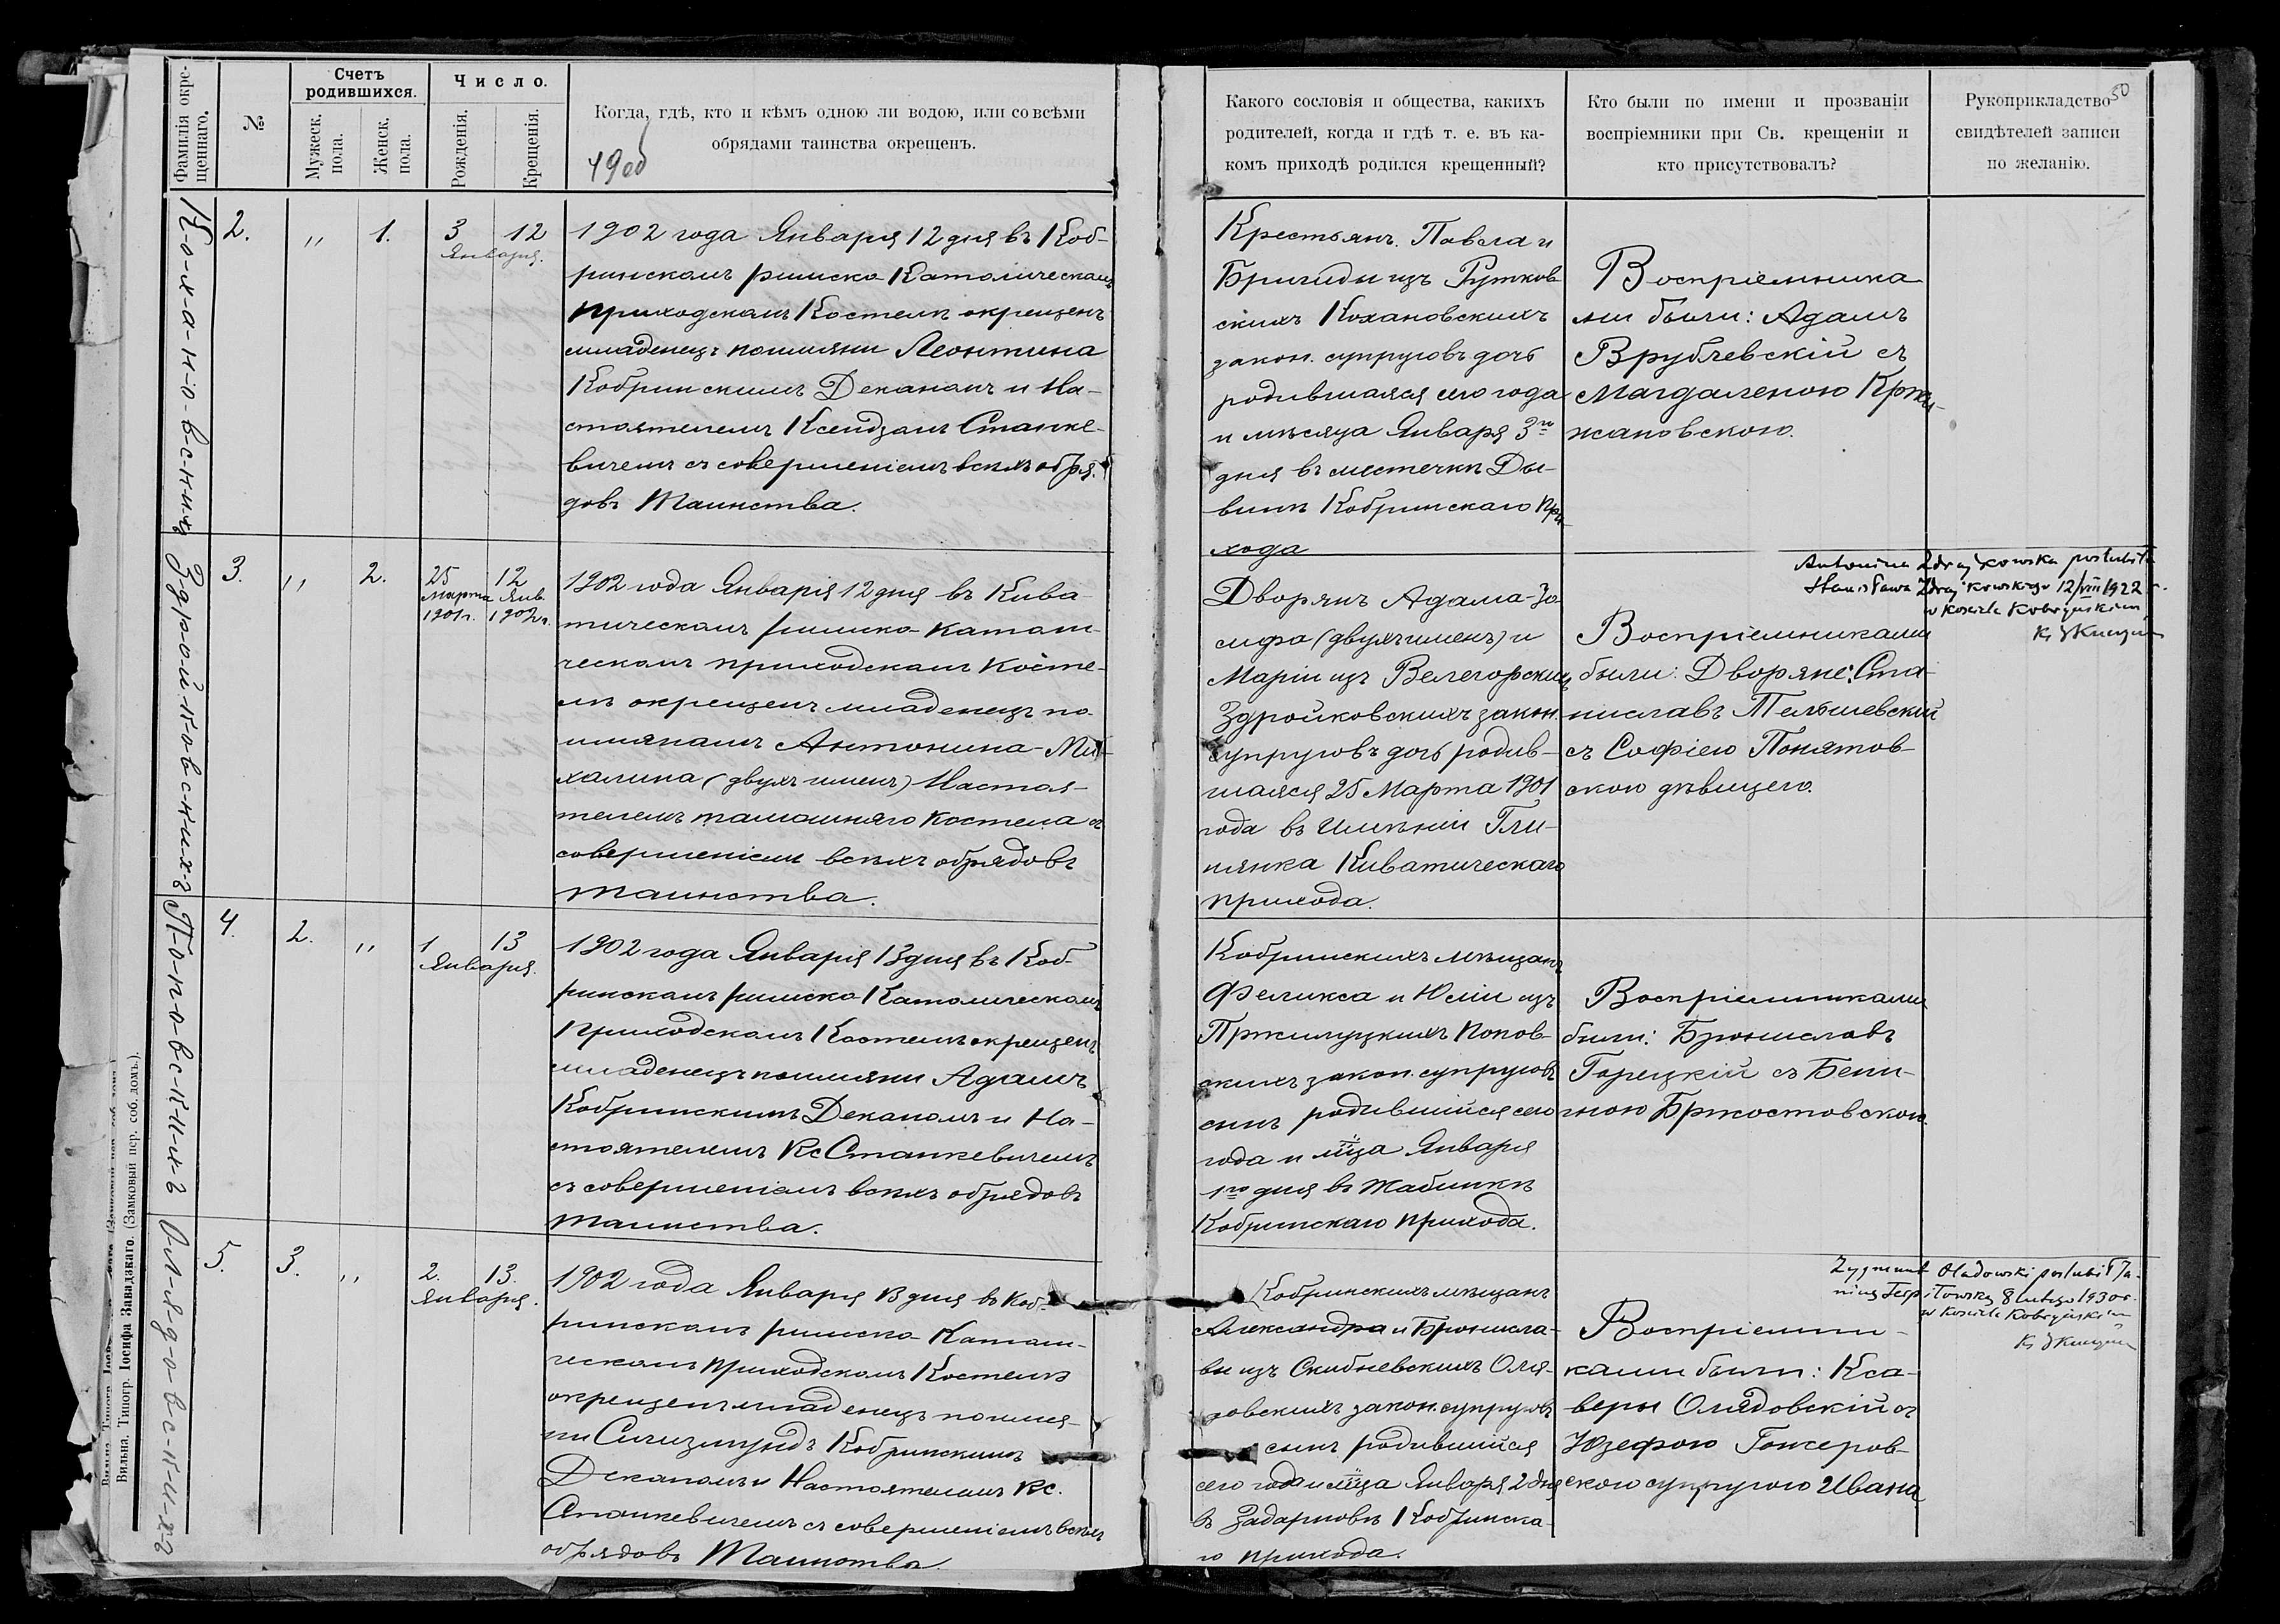 Фамилія окре-
щеннаго.
№
Счетъ
родившихся.
Мужеск.
пола.
Женск.
пола.
Число.
Рожденія.
Крещенія.
Когда, гдѣ, кто и кѣмъ одною ли водою, или со всѣми
обрядами таинства окрещенъ.
Какого сословія и общества, какихъ
родителей, когда и гдѣ т. е. въ ка-
комъ приходѣ родился крещенный?
Кто были по имени и прозваніи
воспріемники при Св. крещеніи и
кто присутствовалъ?
Рукоприкладство
свидѣтелей записи
по желанію.
50
Кохановскихъ
2.
"
1.
3 12
Января.
1902 года Января 12 дня въ Коб-
ринскомъ римско Католическомъ
приходскомъ Костелѣ окрещенъ
младенецъ по имяни Леонтина
Кобринскимъ Деканомъ и На-
стоятелемъ Ксендзомъ Станке-
вичемъ съ совершеніемъ всѣхъ обря-
довъ Таинства.
Крестьянъ Павла и
Бригиды изъ Рутков
скихъ Кохановскихъ
закон. супруговъ дочь
родившаяся сего года
и мѣсяца Января 3го
дня въ мѣстечкѣ Ды-
винѣ Кобринскаго При-
хода
Воспріемника
ми были: Адамъ
Врублевскій съ
Магдаленою Кржи-
жановскою.
Здройковскихъ
3.
"
2.
25 12
Марта Янв.
1901 г. 1902 г.
1902 года Январія 12 дня въ Кива-
тическомъ римско-катол-
ческомъ приходскомъ косте-
лѣ окрещенъ младенецъ по
имянамъ Антонина-Ми-
халина (двухъ именъ) Настоя-
телемъ тамошняго костела съ
совершеніемъ всѣхъ обрядовъ
таинства.
Дворянъ Адама-Іо
сифа (двухъ именъ) и
Маріи изъ Велегорскихъ
Здройковскихъ закон.
супруговъ дочь родив-
шаяся 25 Марта 1901
года въ имѣніи Гли-
нянка Киватическаго
прихода.
Воспріемниками
были: Дворяне: Ста-
ниславъ Тельшевскій
съ Софіею Понятов-
скою дѣвицею.
Antonina Zdrojkowska poślubiła
Stanisława Zdrojkowskiego 12/VIII 1922 r.
w Kościele Kobryńskim
Поповскихъ
4.
2.
"
1 13
Января.
1902 года Январія 13 дня въ Коб-
ринскомъ римско Католическомъ
Приходскомъ Костелѣ окрещенъ
младенецъ по имяни Адамъ
Кобринскимъ Деканомъ и На-
стоятелемъ Кс Станкевичемъ
съ совершеніемъ всѣхъ обрядовъ
таинства.
Кобринскихъ мѣщанъ
Феликса и Юліи изъ
Пржилуцкихъ Попов-
скихъ закон. супруговъ
сынъ родившійся сего
года и мца Января
1го дня въ Жабинкѣ
Кобринскаго прихода.
Воспріемниками
были: Брониславъ
Горецкій съ Бени-
ною Бржостовскою.
Олядовскихъ
5.
3.
"
2. 13.
Января.
1902 года Января 13 дня въ Коб-
ринскомъ римско-Катол-
ческомъ приходскомъ Костелѣ
окрещенъ младенецъ по имя-
ни Сигизмундъ Кобринскимъ
Деканомъ и Настоятелемъ Кс.
Станкевичемъ съ совершеніемъ всѣхъ
обрядовъ Таинства.
Кобринскихъ мѣщанъ
Александра и Бронисла-
вы изъ Скибневскихъ Оля-
довскихъ закон. супруговъ
сынъ родившійся
сего года и мца Января 2 дня
въ Задарновѣ Кобринска-
го прихода.
Воспріемни-
ками были: Кса-
веры Олядовскій съ
Юзефою Гонсеров-
скою супругою Ивана
Zygmunt Oladowski poślubił Ja-
ninę 8 lutego 1930 r.
w Kościele Kobryńskim
Вильна. Типогр. Іосифа Завадзкаго. (Замковый пер. соб. домъ.).